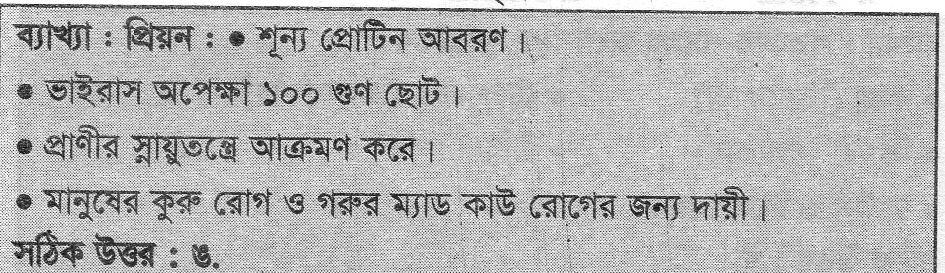 ব্যাখ্যা : প্রিয়ন : ● শূন্য প্রোটিন আবরণ।
● ভাইরাস অপেক্ষা ১০০ গুণ ছোট।
● প্রাণীর স্নায়ুতন্ত্রে আক্রমণ করে।
● মানুষের কুরু রোগ ও গরুর ম্যাড কাউ রোগের জন্য দায়ী।
সঠিক উত্তর : ঙ.